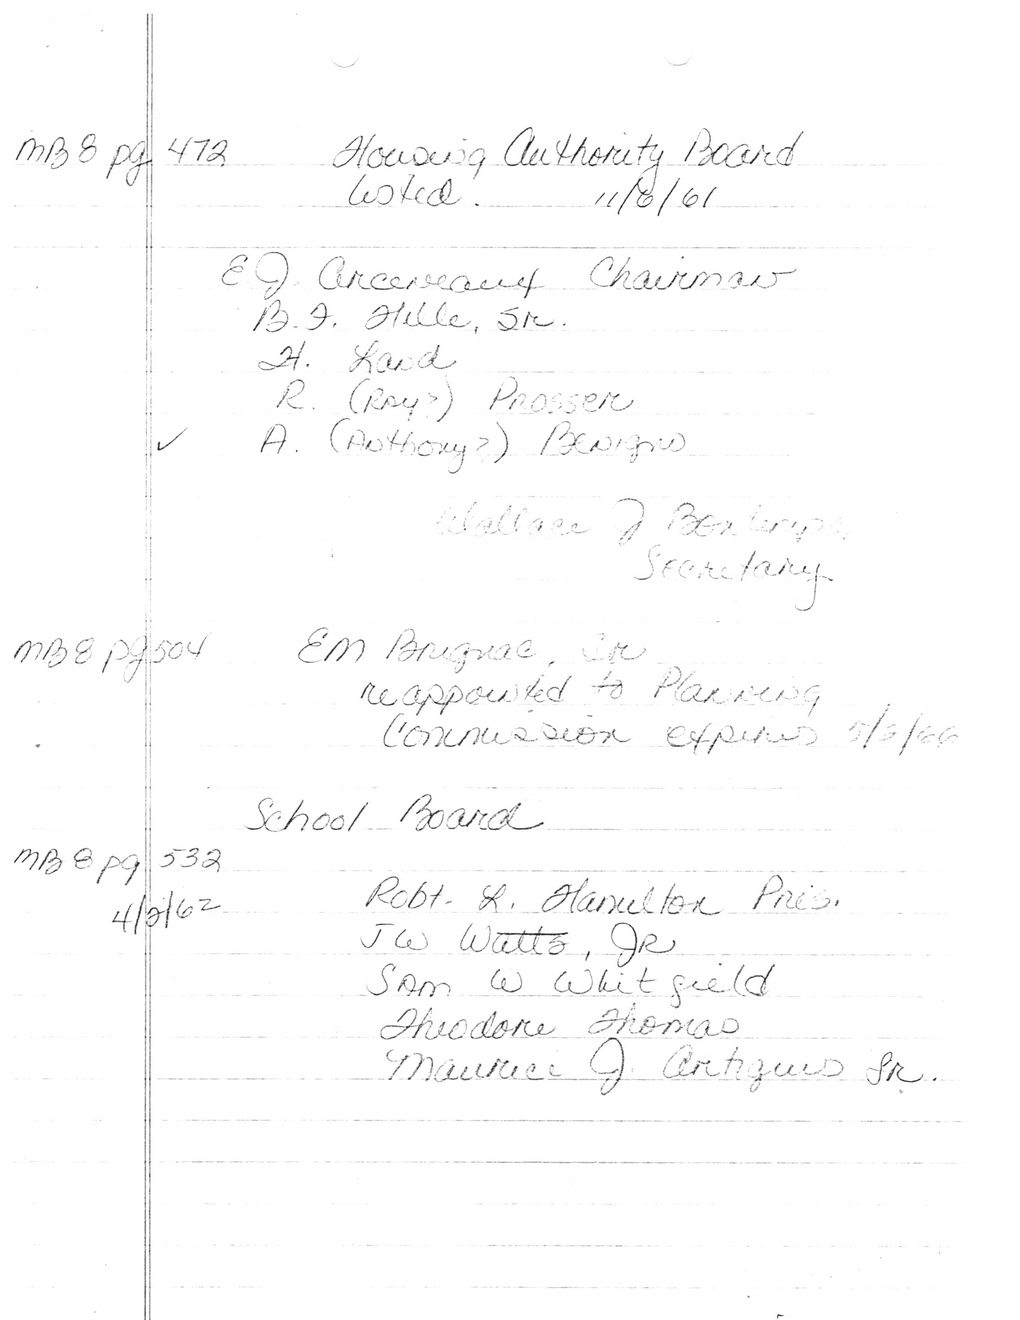 MB 8 pg 472 Housing Authority Board
listed. 11/6/61
E J. Arceneaux Chairman
B. F. Hille, Sr.
H. Land
R. (Ray?) Prosser
✓ A. (Anthony?) Benigno
Wallace J
Secretary
MB 8 pg 504 EM Brignac, Sr
reappointed to Planning
Commission expires
School Board
MB 8 pg 532
4/2/62 Robt. L. Hamilton Pres.
J W Watts, JR
Sam W Whitfield
Theodore Thomas
Maurice J. Artigues Sr.